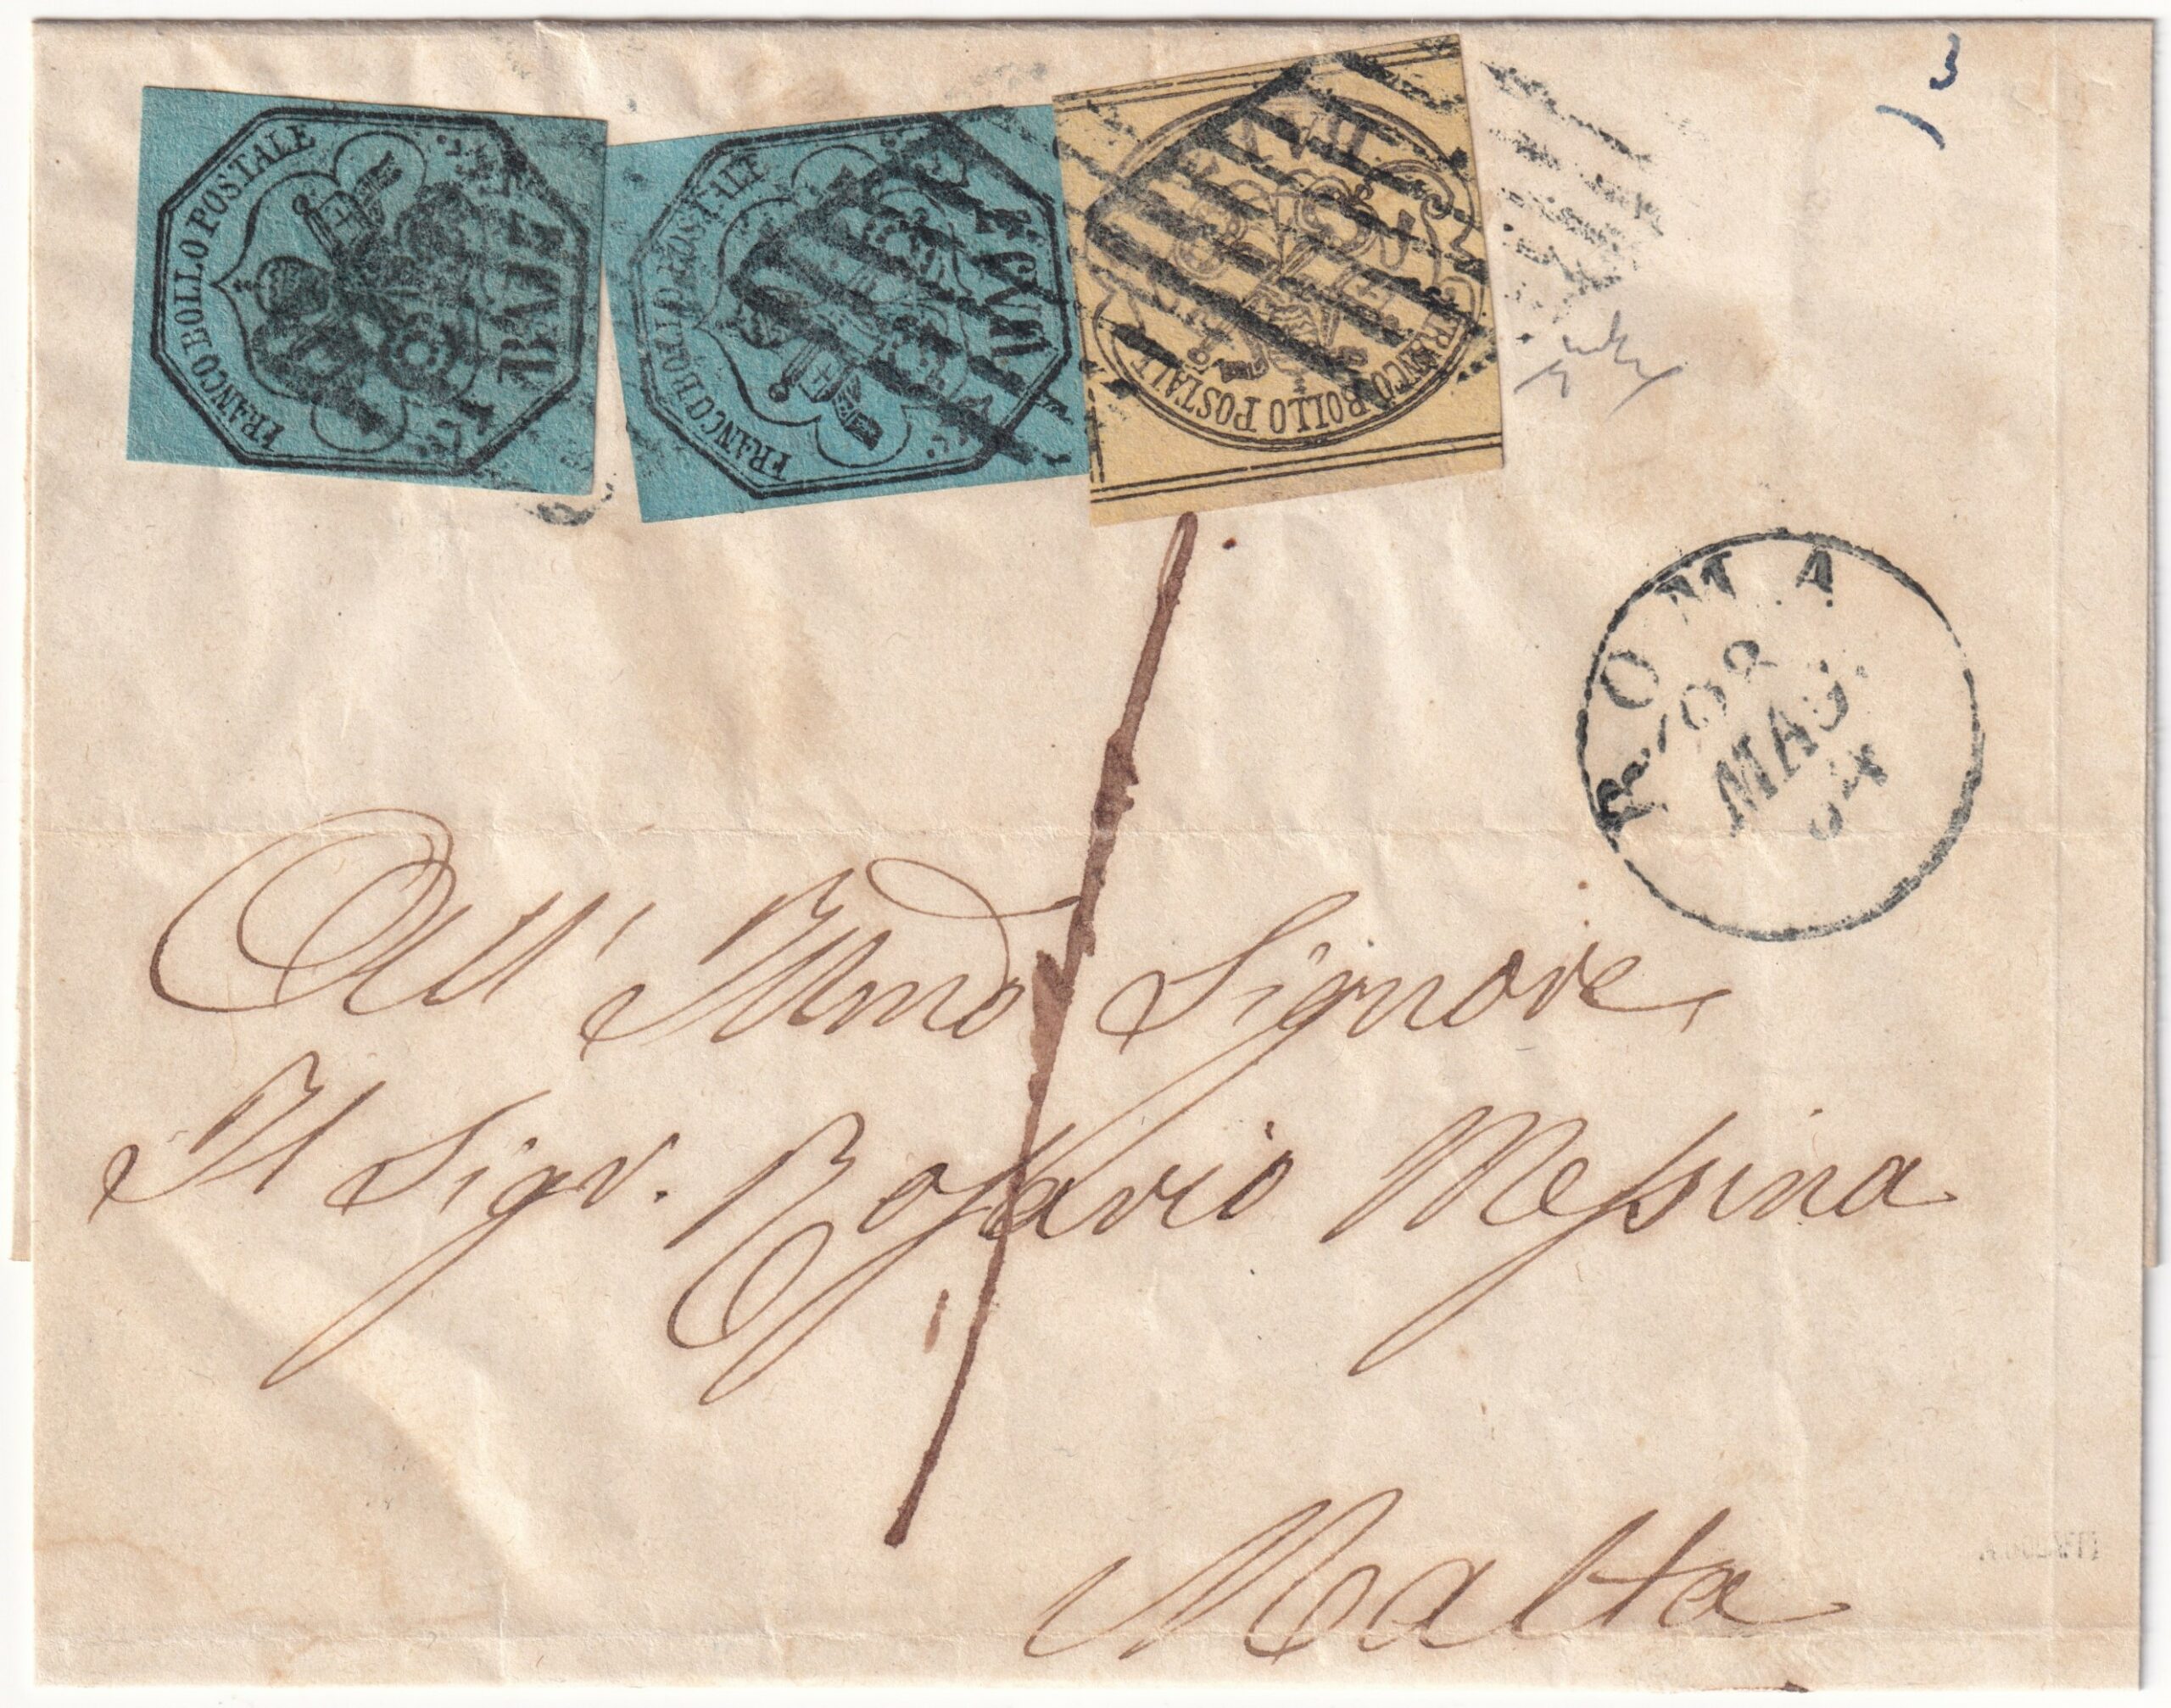 FRANCO BOLLO POSTALE
BAJ 7
FRANCO BOLLO POSTALE
BAJ 7
FRANCO BOLLO POSTALE
BAJ
ROMA
MAG.
64
All' Illmo Signore
Il Sigr. Rosario Messina
Malta